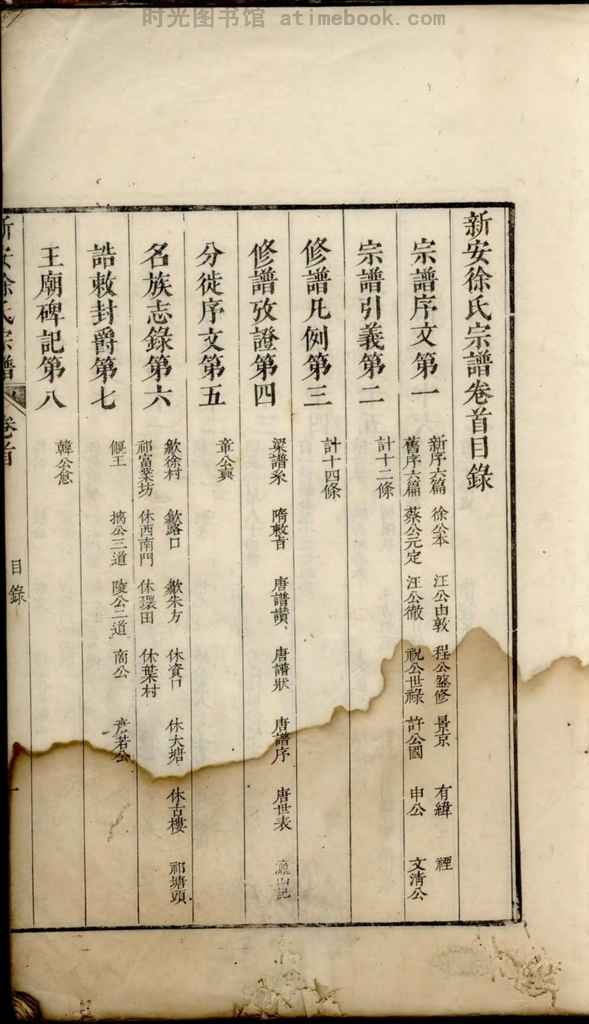 时光图书馆 atimebook.com
新安徐氏宗譜卷首目錄
宗譜序文第一
新序六篇 徐公本 汪公由敦 程公鏊修 景京 有緯 禋
舊序六篇 蔡公元定 汪公徹 祝公世祿 許公國 申公 文清公
宗譜引義第二
計十二條
修譜凡例第三
計十四條
修譜攷證第四
梁譜系 隋敕旨 唐譜讚 唐譜狀 唐譜序 唐世表
分徙序文第五
章公奠
名族志錄第六
歙徐村 歙路口 歙朱方 休資口 休大塘 休古樓 祁塘頭
祁富業坊 休西南門 休環田 休葉村
誥敕封爵第七
偃王 摛公三道 陵公二道 商公 彥若公
王廟碑記第八
韓公愈
新安徐氏宗譜 卷首 目錄 一